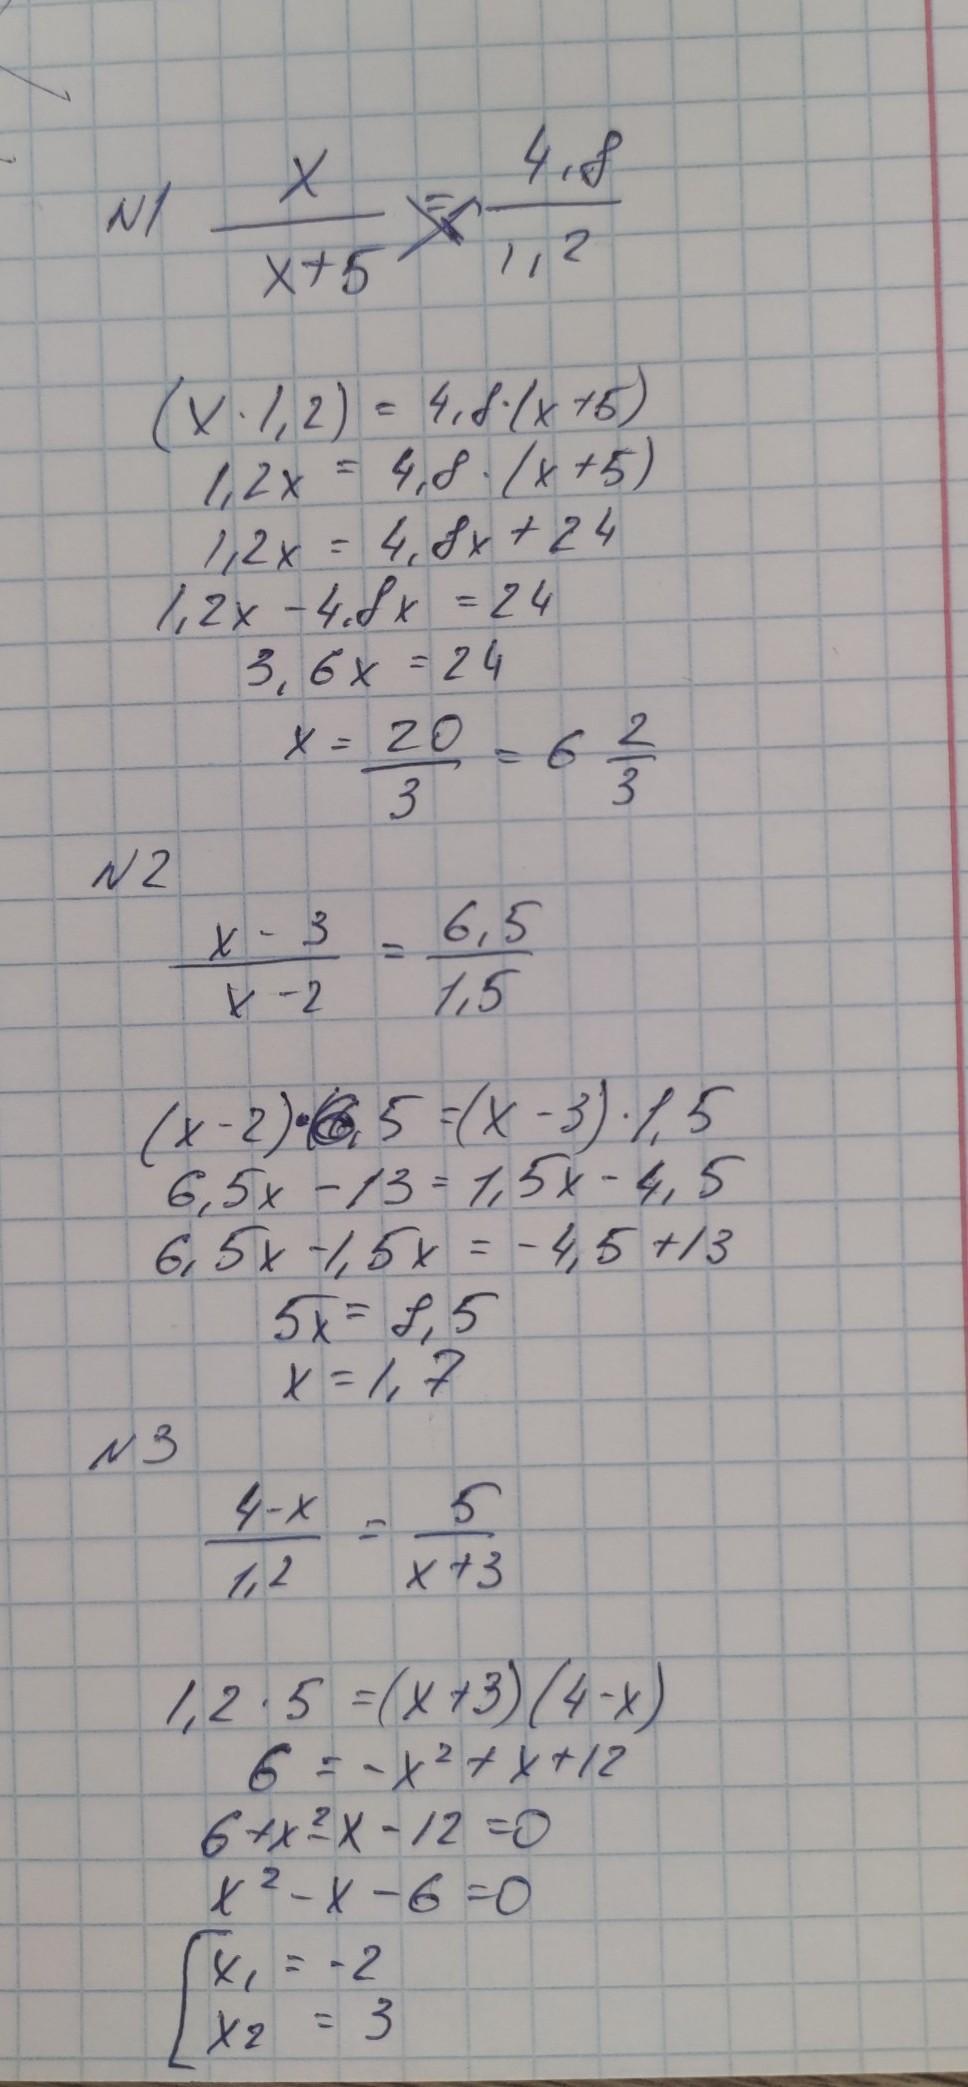 N1 x/(x+5) = 4,8/1,2
(x·1,2) = 4,8·(x+5)
1,2x = 4,8·(x+5)
1,2x = 4,8x + 24
1,2x - 4,8x = 24
3,6x = 24
x = 20/3 = 6 2/3
N2
(x-3)/(x-2) = 6,5/1,5
(x-2)·6,5 = (x-3)·1,5
6,5x - 13 = 1,5x - 4,5
6,5x - 1,5x = -4,5 + 13
5x = 8,5
x = 1,7
N3
(4-x)/1,2 = 5/(x+3)
1,2·5 = (x+3)(4-x)
6 = -x² + x + 12
6 + x² - x - 12 = 0
x² - x - 6 = 0
[x₁ = -2
x₂ = 3